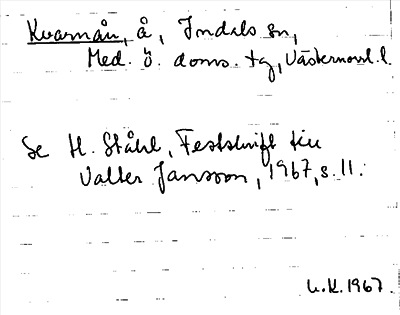 Kvarnån, å, Indals sn,
Med. ö. doms. tg, Västernorrl. l.
Se H. Ståhl, Festskrift till
Valter Jansson, 1967, s. 11.
U.K. 1967.